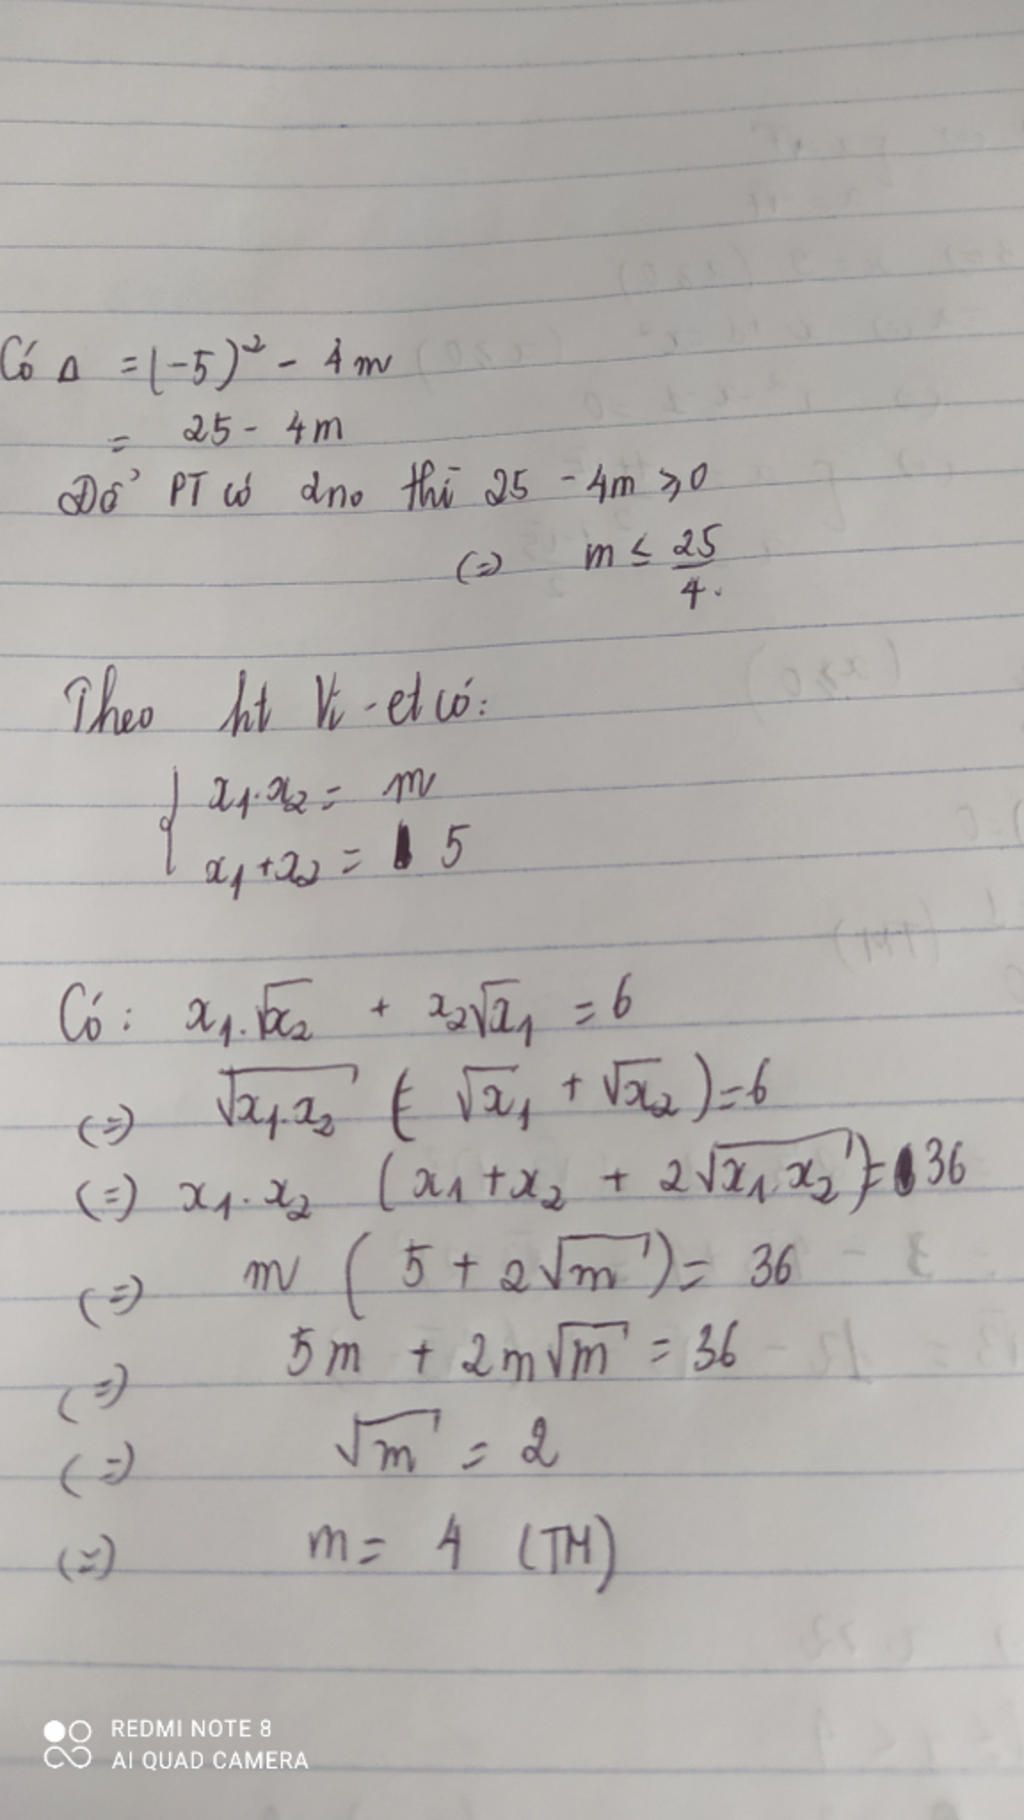 Có Δ = (-5)² - 4m
= 25 - 4m
Để PT có 2no thì 25 - 4m ≥ 0
(=) m ≤ 25/4.
Theo ht Vi-et có:
{ x₁.x₂ = m
x₁+x₂ = 5
Có: x₁.√x₂ + x₂√x₁ = 6
(=) √x₁.x₂ ( √x₁ + √x₂ ) = 6
(=) x₁.x₂ (x₁+x₂ + 2√x₁.x₂) = 36
(=) m ( 5 + 2√m ) = 36
(=) 5m + 2m√m = 36
(=) √m = 2
(=) m = 4 (TM)
REDMI NOTE 8
AI QUAD CAMERA